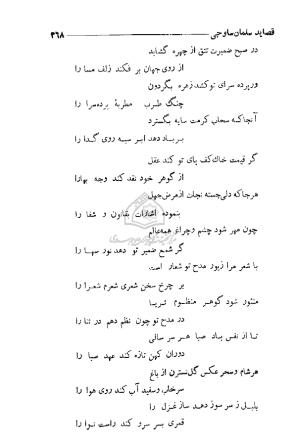 قصاید سلمان ساوجی ۳۶۸
در صبح ضمیرت تتق از چهره گشاید
از روی جهان بر فکند زلف مسا را
ور پرده سرای تو کند زهره بگردون
چنگ طرب مطربهٔ پرده سرا را
آنجا که سحاب کرمت سایه بگسترد
بر باد دهد ابر سیه روی گدا را
گر قیمت خاک کف پای تو کند عقل
از گوهر خود نقد کند وجه بها را
هر جا که دلی جسته نجات از مرض جهل
بنموده اشارات بقانون و شفا را
چون مهر شود چشم و چراغ همه عالم
گر شمع ضمیر تو دهد نور سها را
با شعر مرا زیور مدح تو شعار است
بر چرخ سخن شعری شعرم شعرا را
منثور شود گوهر منظوم ثریا
در مدح تو چون نظم دهم در ثنا را
تا از نفس باد صبا هر سر سالی
دوران کهن تازه کند عهد صبا را
هر شام و سحر عکس گل نسترن از باغ
سرخاب و سفید آب کند روی هوا را
بلبل ز سر سوز دهد ساز غزل را
قمری بسر سرو کند راست نوا را